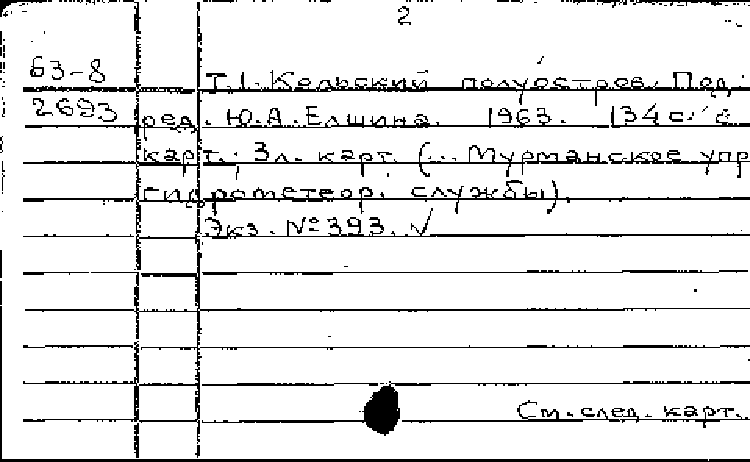 2
63-8 Т.1. Кольский полуостров. Под
2693 ред. Ю.А. Елшина. 1963. 134 с. с
карт.; 3 л. карт. (... Мурманское упр
гидрометеор. службы).
Экз. № 393. √
См. след. карт.